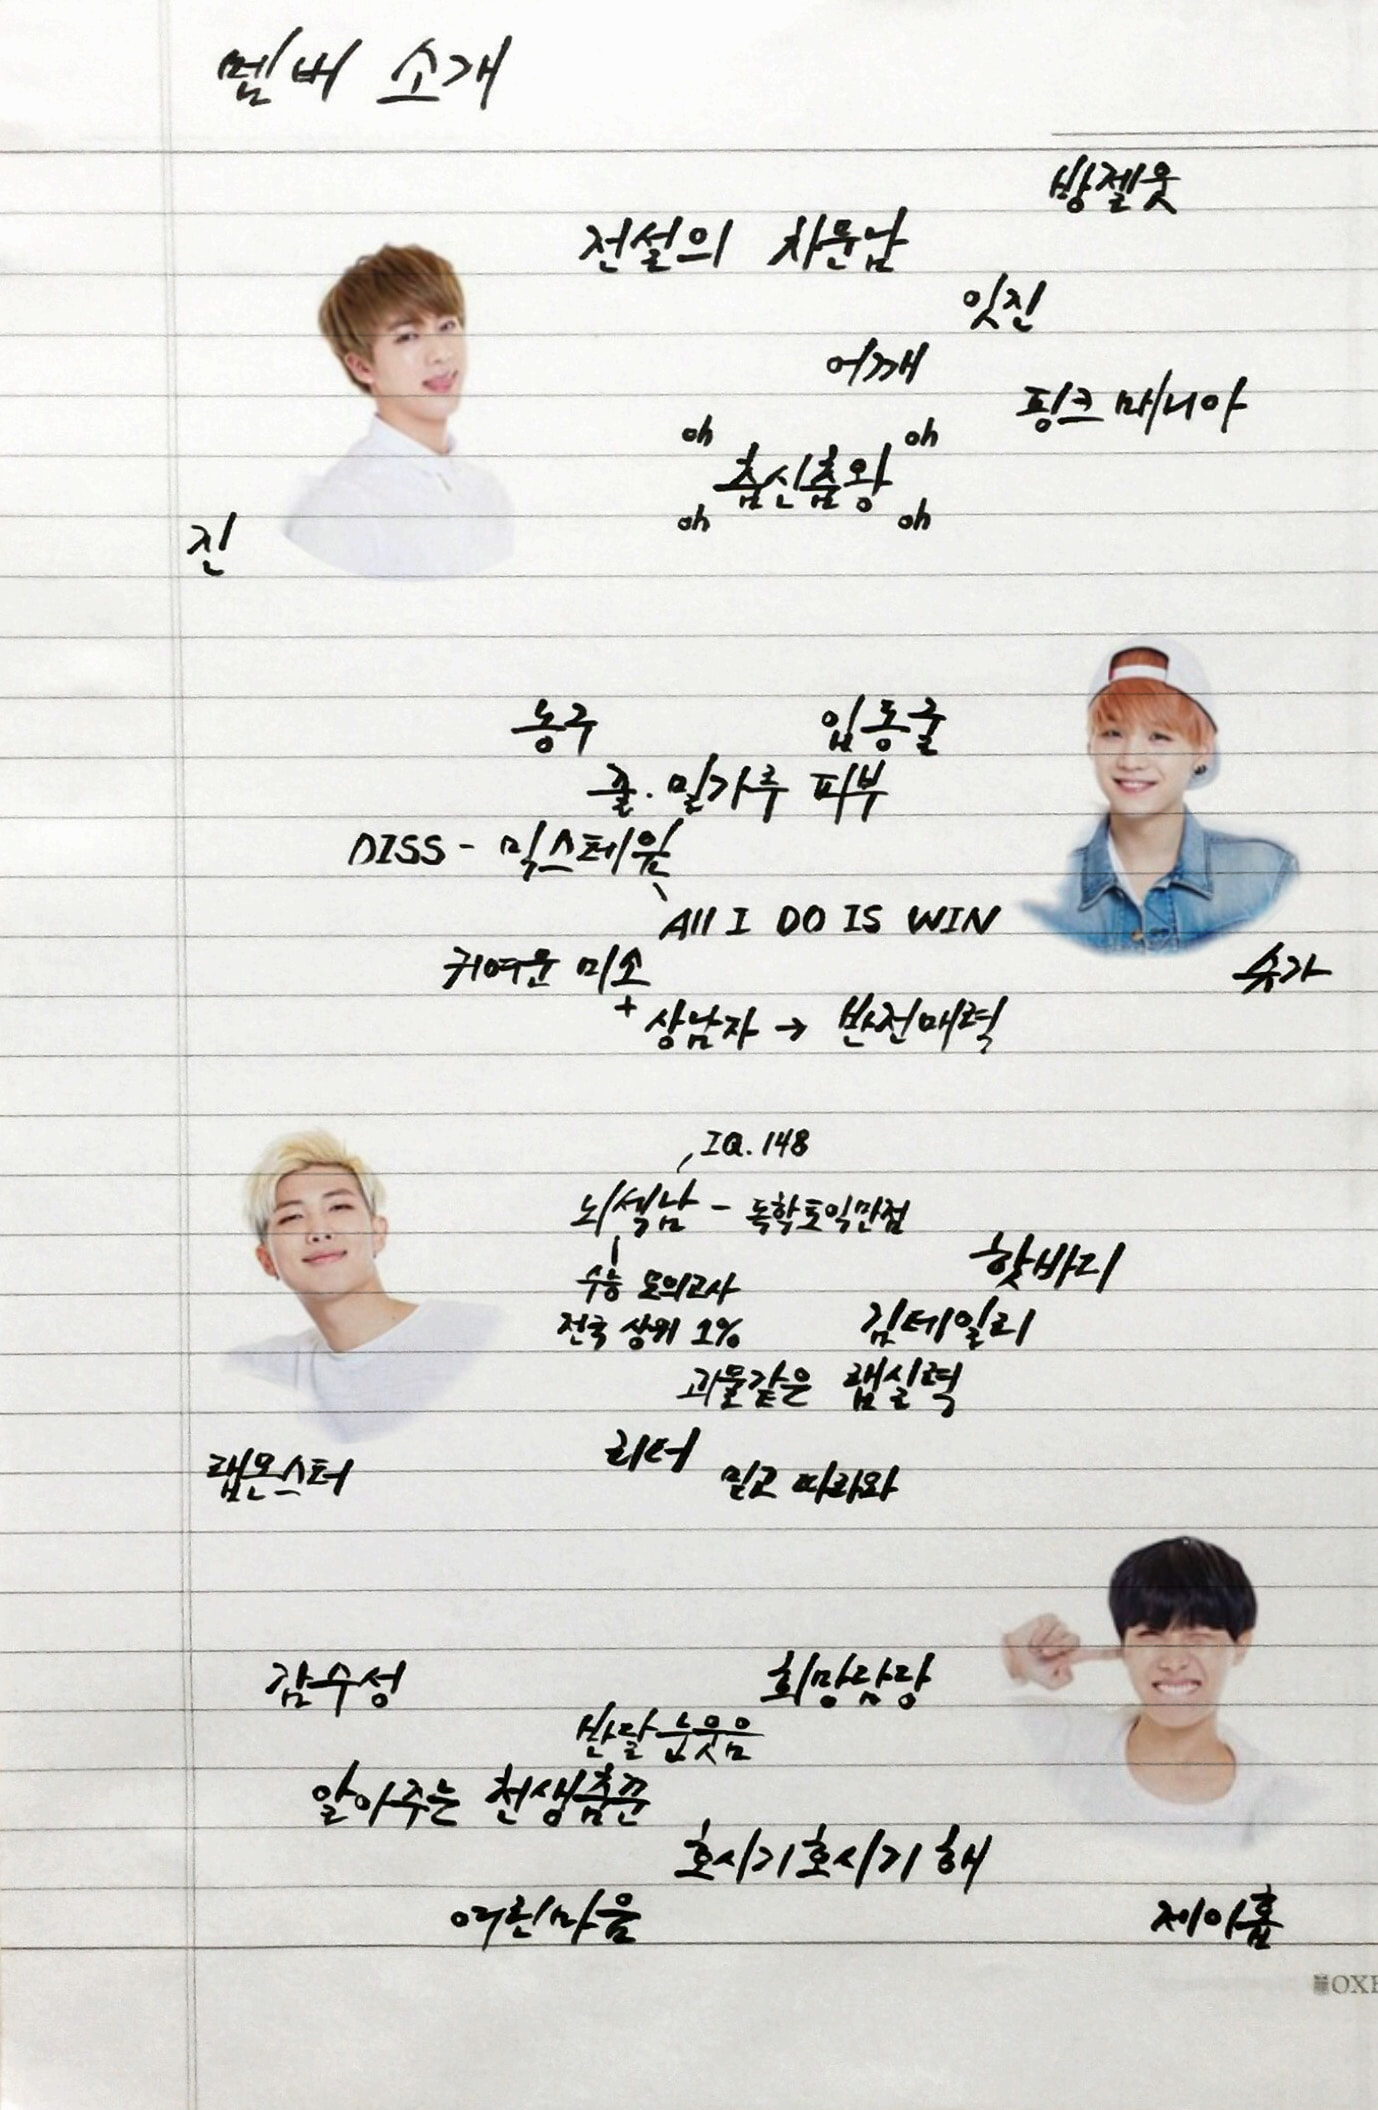 멤버 소개
방젤웃
전설의 차문남
잇진
어깨
핑크 매니아
oh oh
춤신춤왕
oh oh
진
농구 입동굴
쥴. 밀가루 피부
DISS - 믹스테잎
All I DO IS WIN
귀여운 미소
+ 상남자 → 반전매력
슈가
IQ. 148
뇌섹남 - 독학토익만점
수능 모의고사
전국 상위 1%
핫바디
김데일리
괴물같은 랩실력
리더
믿고 따라와
랩몬스터
감수성 희망담당
반달눈웃음
알아주는 천생춤꾼
호시기호시기 해
여린마음
제이홉
OXF